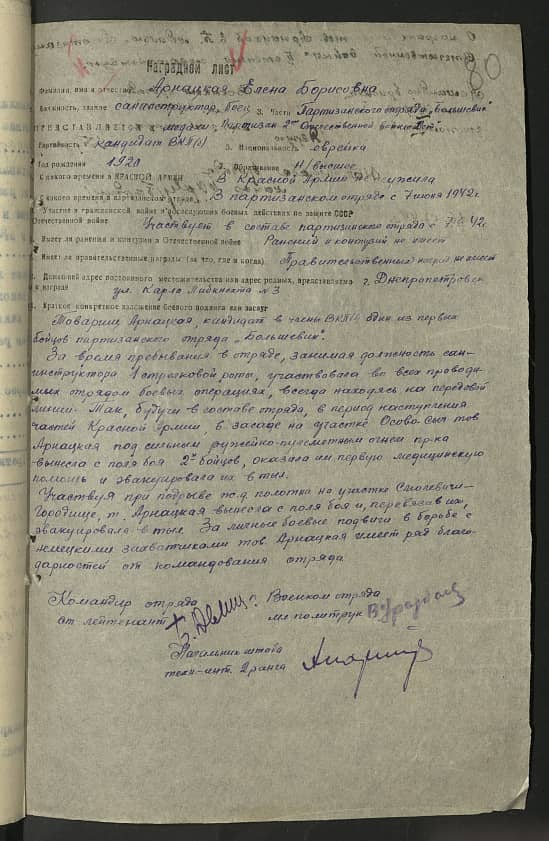 80
Наградной лист
Фамилия, имя и отчество Арнацкая Елена Борисовна
Должность, звание санинструктор, боец 3. Части Партизанского отряда „Большевик"
ПРЕДСТАВЛЯЕТСЯ к медали „Партизан Отечественной войны"
Партийность кандидат ВКП(б) Национальность еврейка
Год рождения 1920 Образование н/высшее
С какого времени в КРАСНОЙ АРМИИ В Красной Армии не служила
С какого времени в партизанском отряде В партизанском отряде с 7 июня 1942 г.
Участие в гражданской войне и последующих боевых действиях по защите СССР
Отечественной войне Участвует в составе партизанского отряда с
Имеет ли ранения и контузии в Отечественной войне Ранений и контузий не имеет
Имеет ли правительственные награды (за что, где и когда) Правительственных наград не имеет
Домашний адрес постоянного местожительства или адрес родных, представляемого
к награде г. Днепропетровск
ул. Карла Либкнехта № 3
Краткое конкретное изложение боевого подвига или заслуг
Товарищ Арнацкая, кандидат в члены ВКП(б) один из первых
бойцов партизанского отряда „Большевик".
За время пребывания в отряде, занимая должность сан-
инструктора 1 стрелковой роты, участвовала во всех проводи-
мых отрядом боевых операциях, всегда находясь на передовой
линии. Так, будучи в составе отряда, в период наступления
частей Красной Армии, в засаде на участке тов
Арнацкая под сильным ружейно-пулеметным огнем пр-ка
вынесла с поля боя 2х бойцов, оказала им первую медицинскую
помощь и эвакуировала их в тыл.
Участвуя при подрыве ж.д. полотна на участке Смолевичи-
Городище, т. Арнацкая вынесла с поля боя и, перевязав их,
эвакуировала в тыл. За личные боевые подвиги в борьбе с
немецкими захватчиками тов Арнацкая имеет ряд благо-
дарностей от командования отряда
Командир отряда Военком отряда
ст лейтенант мл политрук
Начальник штаба
техн-инт. 2 ранга